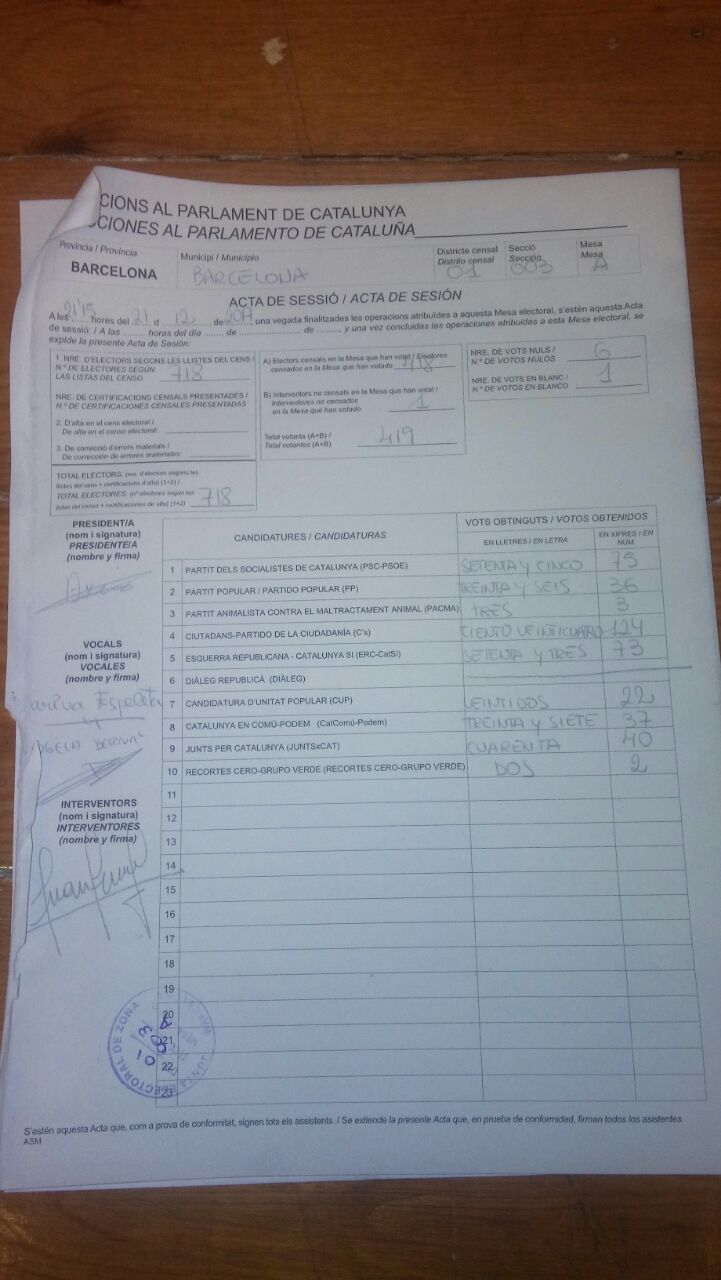 CIONS AL PARLAMENT DE CATALUNYA
CIONES AL PARLAMENTO DE CATALUÑA
Província / Provincia
BARCELONA
Municipi / Municipio
BARCELONA
Districte censal
Distrito censal
01
Secció
Sección
003
Mesa
Mesa
A
ACTA DE SESSIÓ / ACTA DE SESIÓN
A les 21'15 hores del 21 d 12 de 2017 una vegada finalitzades les operacions atribuïdes a aquesta Mesa electoral, s'estén aquesta Acta
de sessió: / A las ........ horas del día ........ de ........................ de .......... y una vez concluidas las operaciones atribuidas a esta Mesa electoral, se
expide la presente Acta de Sesión:
1. NRE. D'ELECTORS SEGONS LES LLISTES DEL CENS /
N.º DE ELECTORES SEGÚN
LAS LISTAS DEL CENSO 718
NRE. DE CERTIFICACIONS CENSALS PRESENTADES /
N.º DE CERTIFICACIONES CENSALES PRESENTADAS
2. D'alta en el cens electoral /
De alta en el censo electoral:
3. De correcció d'errors materials /
De corrección de errores materiales:
TOTAL ELECTORS: (nre. d'electors segons les
llistes del cens + certificacions d'alta) (1+2) /
TOTAL ELECTORES: (nº electores según las
listas del censo + certificaciones de alta) (1+2) 718
A) Electors censats en la Mesa que han votat / Electores
censados en la Mesa que han votado 418
B) Interventors no censats en la Mesa que han votat /
Interventores no censados
en la Mesa que han votado 1
Total votants (A+B) /
Total votantes (A+B) 419
NRE. DE VOTS NULS /
N.º DE VOTOS NULOS 6
NRE. DE VOTS EN BLANC /
N.º DE VOTOS EN BLANCO 1
PRESIDENT/A
(nom i signatura)
PRESIDENTE/A
(nombre y firma)
VOCALS
(nom i signatura)
VOCALES
(nombre y firma)
INTERVENTORS
(nom i signatura)
INTERVENTORES
(nombre y firma)
CANDIDATURES / CANDIDATURAS
VOTS OBTINGUTS / VOTOS OBTENIDOS
EN LLETRES / EN LETRA
EN XIFRES / EN NÚM.
1 PARTIT DELS SOCIALISTES DE CATALUNYA (PSC-PSOE) SETENTA Y CINCO 75
2 PARTIT POPULAR / PARTIDO POPULAR (PP) TREINTA Y SEIS 36
3 PARTIT ANIMALISTA CONTRA EL MALTRACTAMENT ANIMAL (PACMA) TRES 3
4 CIUTADANS-PARTIDO DE LA CIUDADANÍA (C's) CIENTO VEINTICUATRO 124
5 ESQUERRA REPUBLICANA - CATALUNYA SÍ (ERC-CatSí) SETENTA Y TRES 73
6 DIÀLEG REPUBLICÀ (DIÀLEG)
7 CANDIDATURA D'UNITAT POPULAR (CUP) VEINTIDOS 22
8 CATALUNYA EN COMÚ-PODEM (CatComú-Podem) TREINTA Y SIETE 37
9 JUNTS PER CATALUNYA (JUNTSxCAT) CUARENTA 40
10 RECORTES CERO-GRUPO VERDE (RECORTES CERO-GRUPO VERDE) DOS 2
11
12
13
14
15
16
17
18
19
20
21
22
23
JUNTA ELECTORAL DE ZONA
01
003
A
S'estén aquesta Acta que, com a prova de conformitat, signen tots els assistents. / Se extiende la presente Acta que, en prueba de conformidad, firman todos los asistentes.
ASM